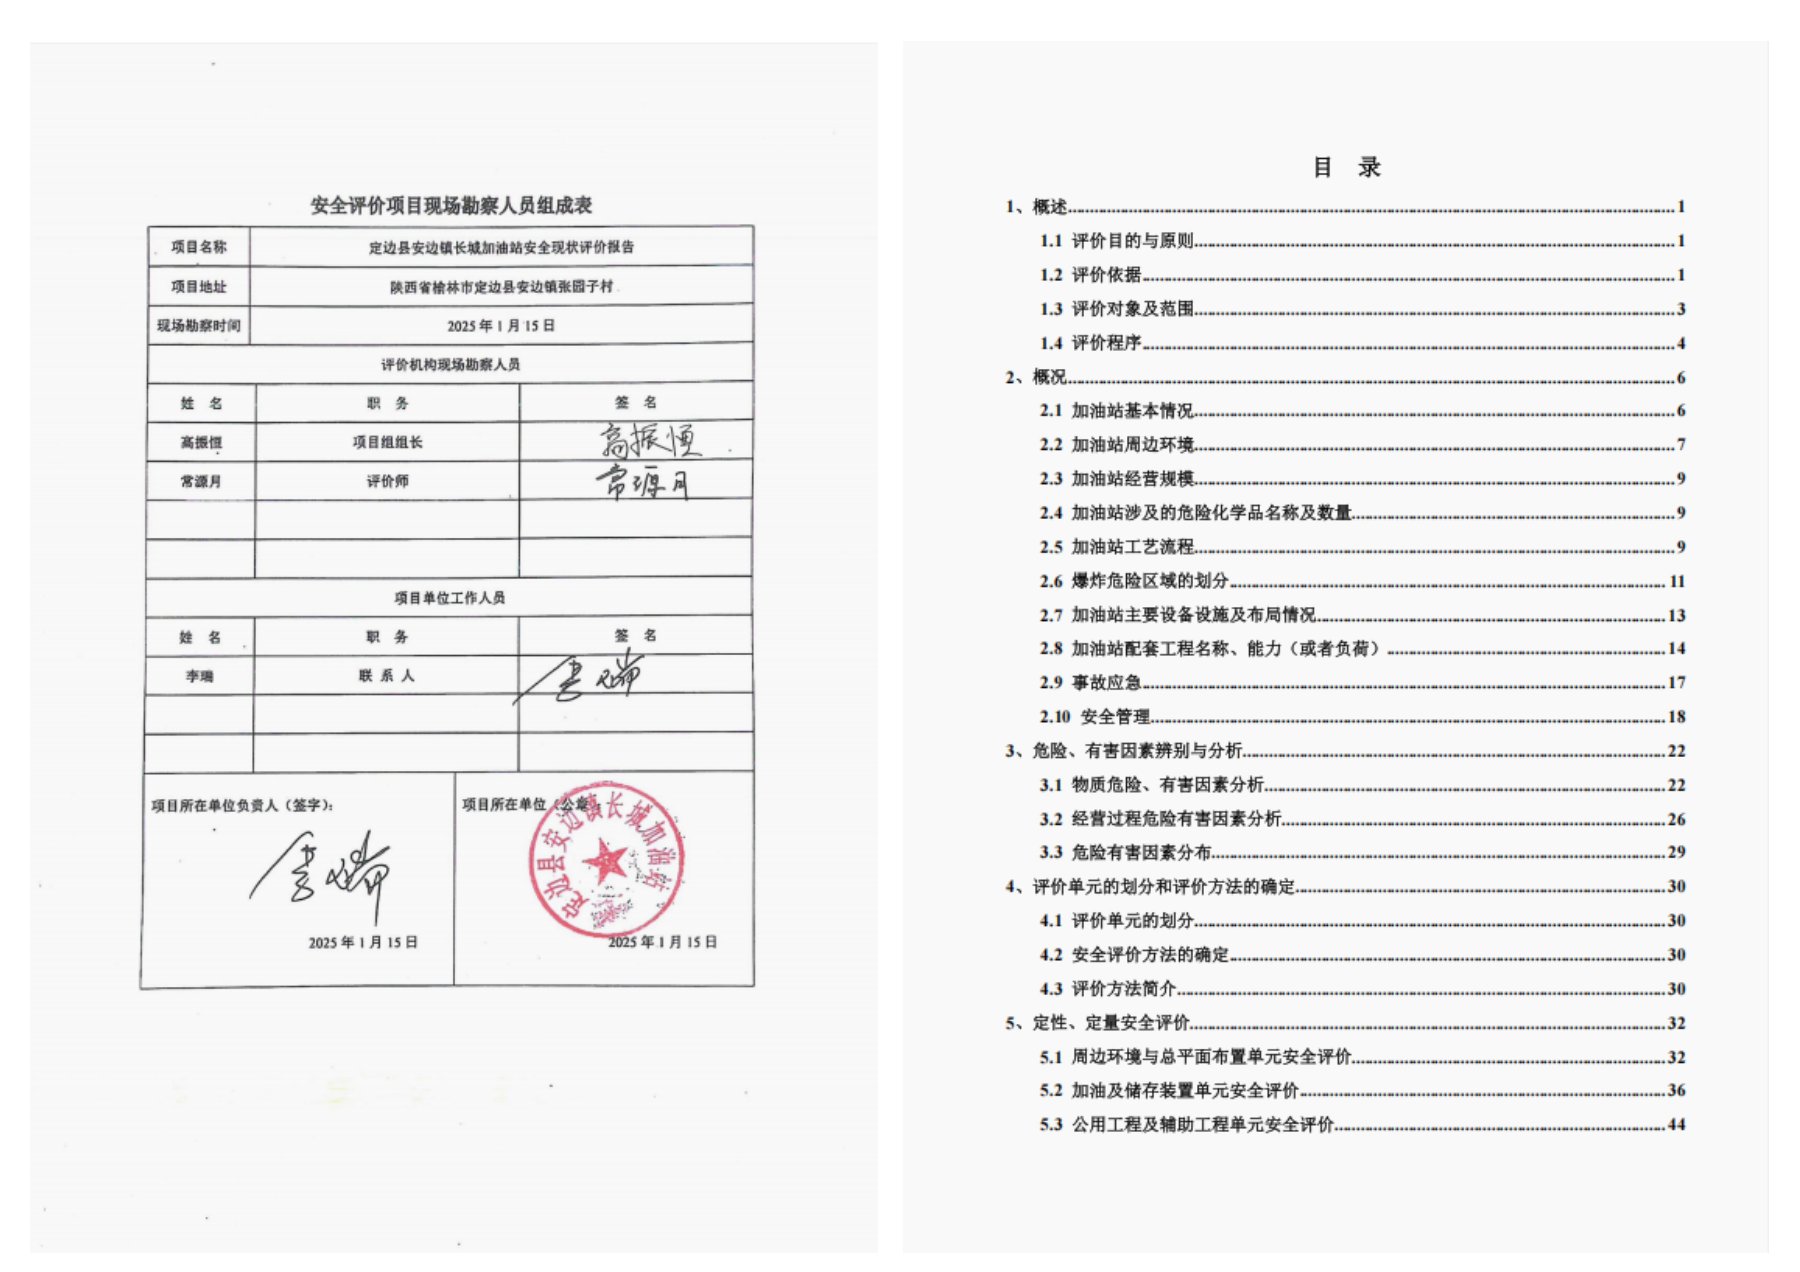 安全评价项目现场勘察人员组成表
项目名称 定边县安边镇长城加油站安全现状评价报告
项目地址 陕西省榆林市定边县安边镇张园子村
现场勘察时间 2025 年 1 月 15 日
评价机构现场勘察人员
姓 名 职 务 签 名
高振恒 项目组组长 高振恒
常源月 评价师 常源月
项目单位工作人员
姓 名 职 务 签 名
李瑞 联 系 人 李瑞
项目所在单位负责人（签字）： 项目所在单位（公章）
李瑞
定边县安边镇长城加油站
2025 年 1 月 15 日 2025 年 1 月 15 日
目 录
1、概述 1
1.1 评价目的与原则 1
1.2 评价依据 1
1.3 评价对象及范围 3
1.4 评价程序 4
2、概况 6
2.1 加油站基本情况 6
2.2 加油站周边环境 7
2.3 加油站经营规模 9
2.4 加油站涉及的危险化学品名称及数量 9
2.5 加油站工艺流程 9
2.6 爆炸危险区域的划分 11
2.7 加油站主要设备设施及布局情况 13
2.8 加油站配套工程名称、能力（或者负荷） 14
2.9 事故应急 17
2.10 安全管理 18
3、危险、有害因素辨别与分析 22
3.1 物质危险、有害因素分析 22
3.2 经营过程危险有害因素分析 26
3.3 危险有害因素分布 29
4、评价单元的划分和评价方法的确定 30
4.1 评价单元的划分 30
4.2 安全评价方法的确定 30
4.3 评价方法简介 30
5、定性、定量安全评价 32
5.1 周边环境与总平面布置单元安全评价 32
5.2 加油及储存装置单元安全评价 36
5.3 公用工程及辅助工程单元安全评价 44